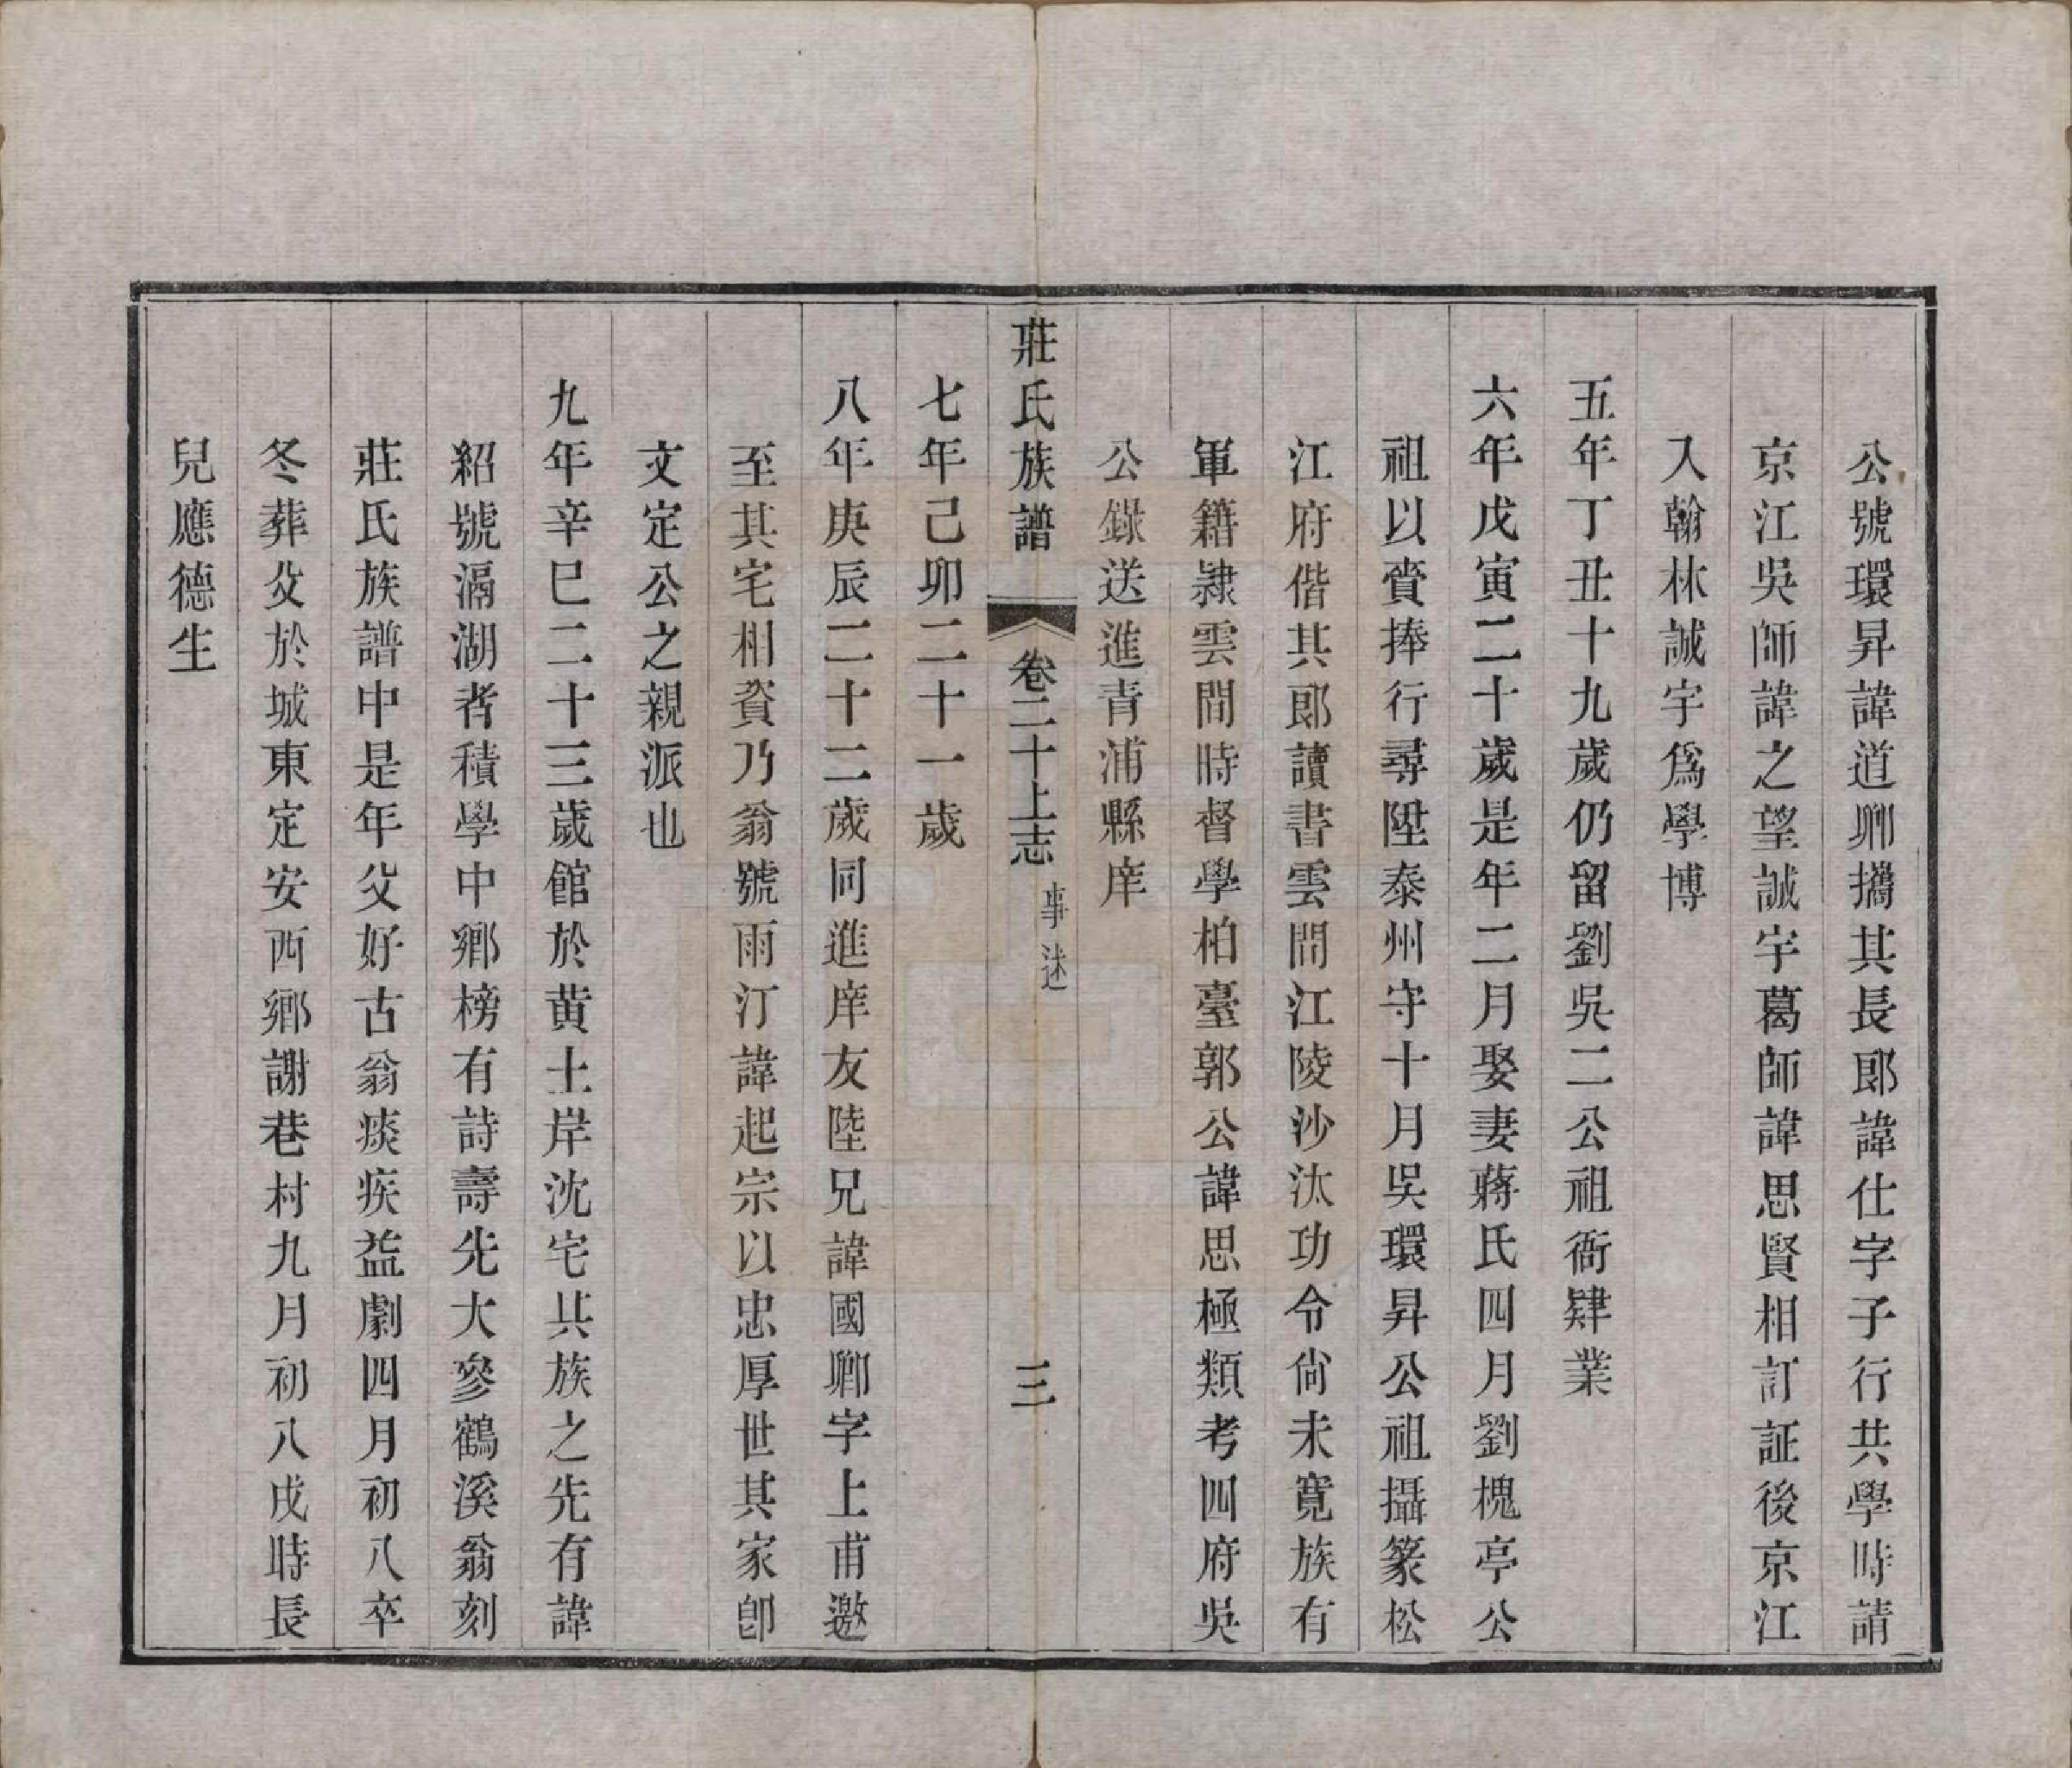 公號環昇諱道卿攜其長郎諱仕字子行共學時請
京江吳師諱之望誠宇葛師諱思賢相訂証後京江
入翰林誠宇爲學博
五年丁丑十九歲仍留劉吳二公祖衙肄業
六年戊寅二十歲是年二月娶妻蔣氏四月劉槐亭公
祖以賫捧行尋陞泰州守十月吳環昇公祖攝篆松
江府偕其郎讀書雲間江陵沙汰功令尙未寛族有
軍籍隸雲間時督學柏臺郭公諱思極類考四府吳
公錄送進青浦縣庠
莊氏族譜
卷二十上志
事述
三
七年己卯二十一歲
八年庚辰二十二歲同進庠友陸兄諱國卿字上甫邀
至其宅相資乃翁號雨汀諱起宗以忠厚世其家卽
文定公之親派也
九年辛巳二十三歲館於黄土岸沈宅其族之先有諱
紹號滆湖者積學中鄉榜有詩壽先大參鶴溪翁刻
莊氏族譜中是年父好古翁痰疾益劇四月初八卒
冬葬父於城東定安西鄉謝巷村九月初八戌時長
兒應德生